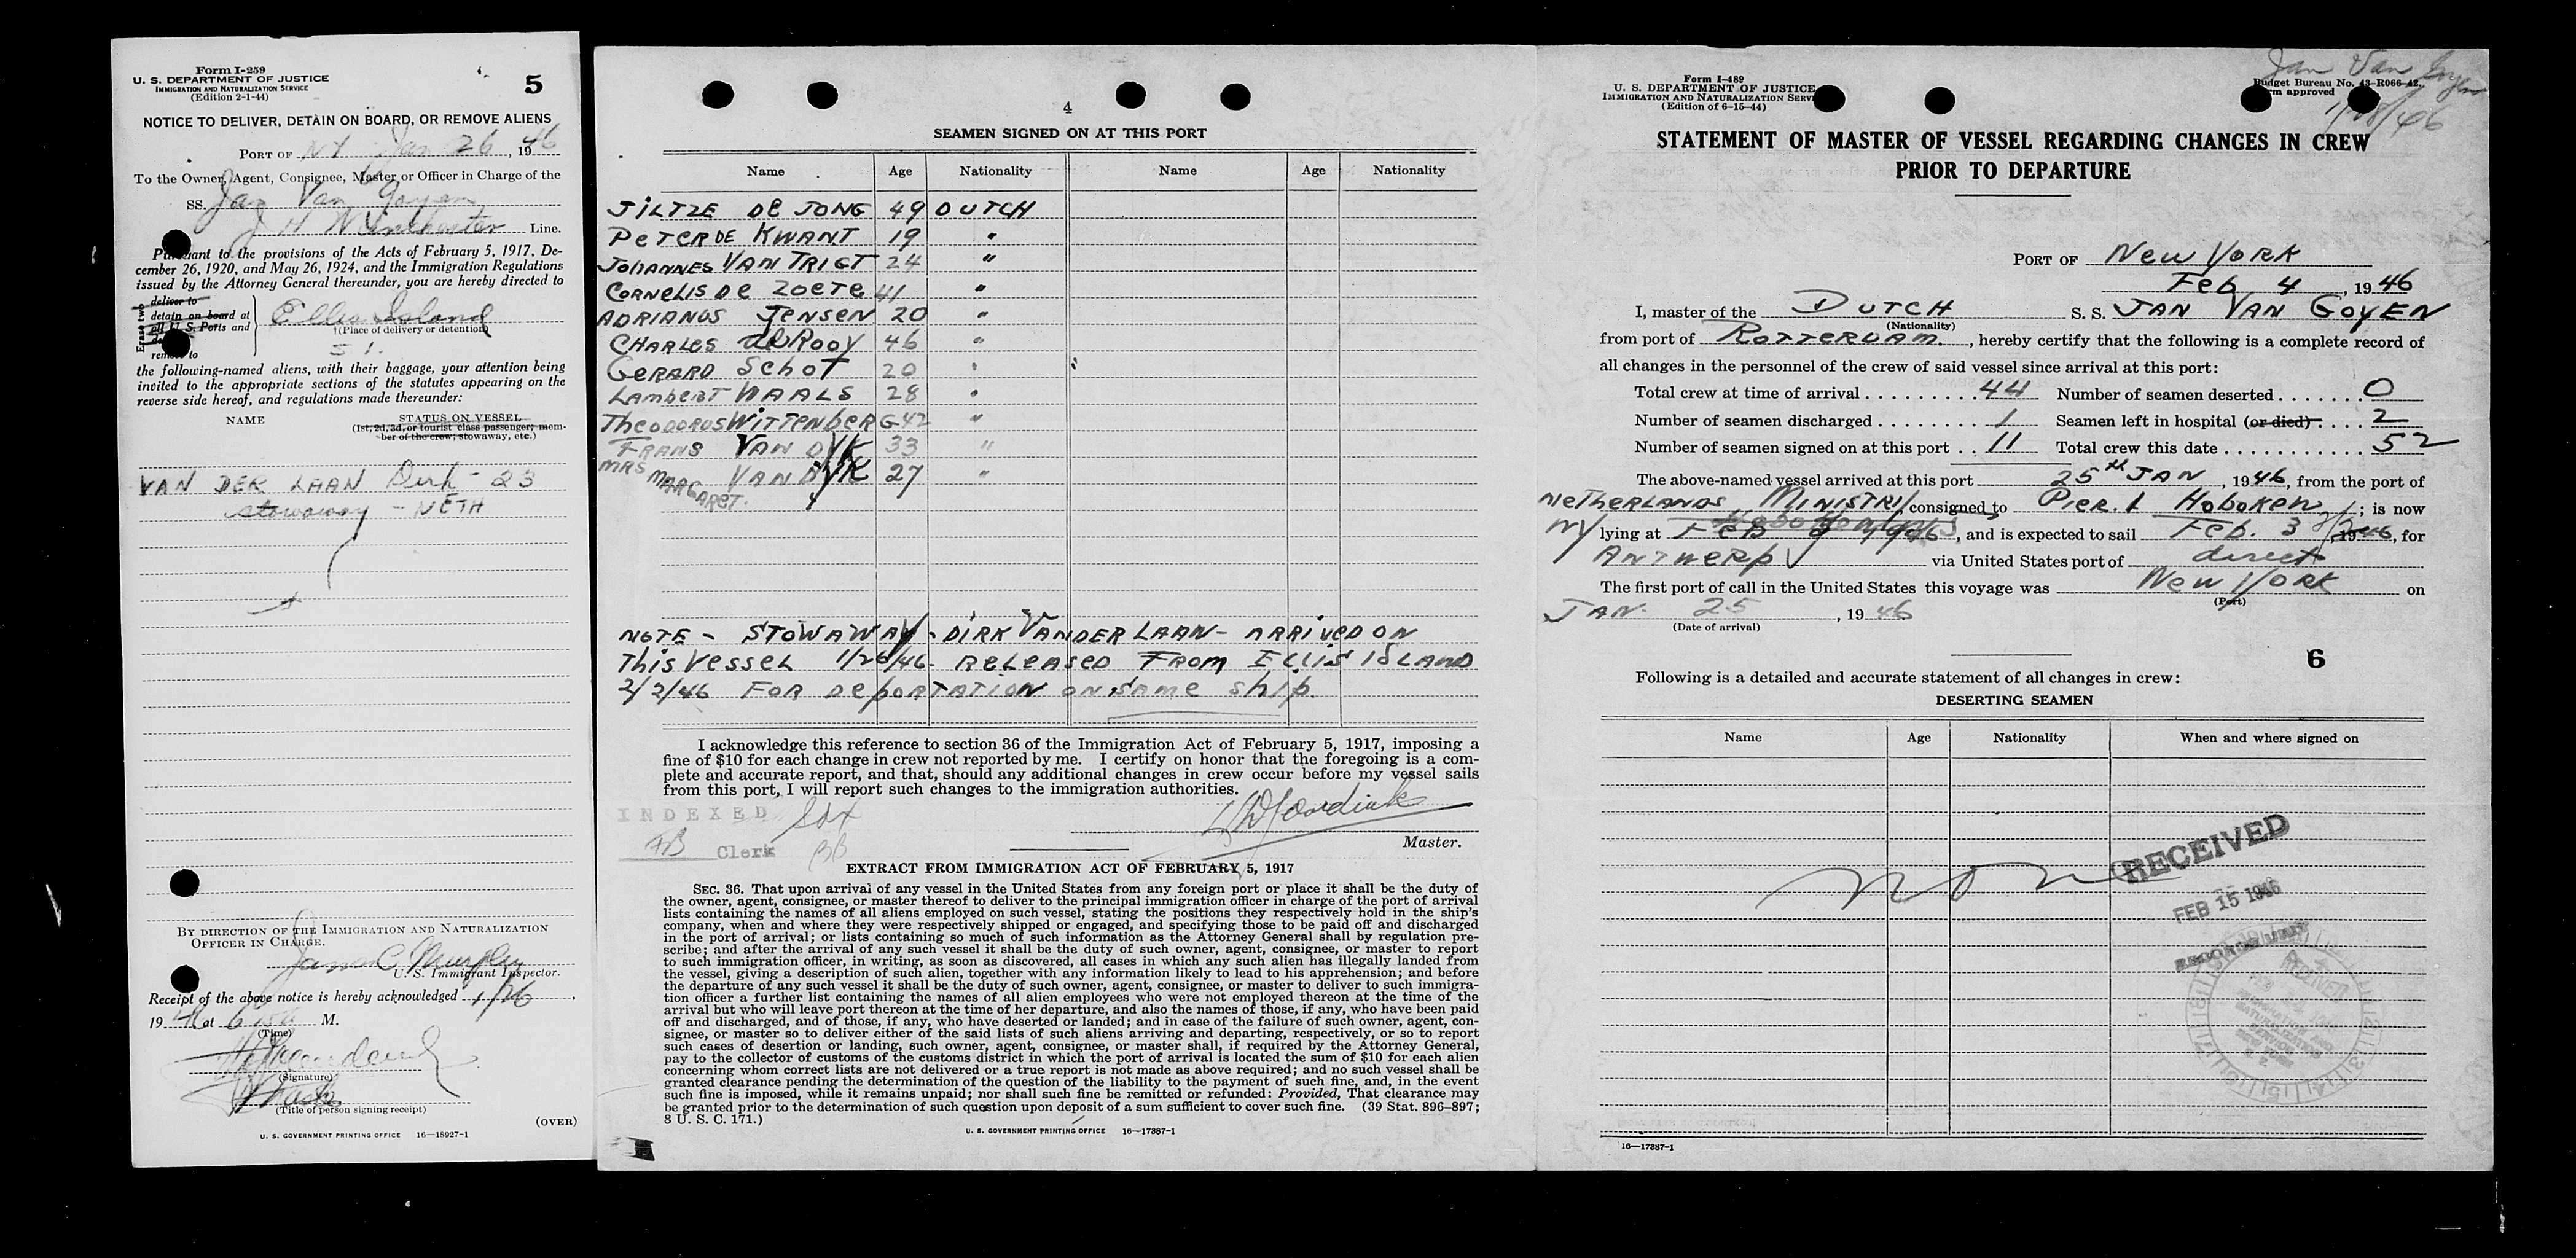 Form I-259
U. S. DEPARTMENT OF JUSTICE
IMMIGRATION AND NATURALIZATION SERVICE
(Edition 2-1-44)
5
NOTICE TO DELIVER, DETAIN ON BOARD, OR REMOVE ALIENS
PORT OF NY Jan 26, 1946
To the Owner, Agent, Consignee, Master or Officer in Charge of the
SS. Jan Van Goyen
J H Winchester Line.
Pursuant to the provisions of the Acts of February 5, 1917, De-
cember 26, 1920, and May 26, 1924, and the Immigration Regulations
issued by the Attorney General thereunder, you are hereby directed to
Erase two
deliver to
detain on board at
all U. S. Ports and
remove to
Ellis Island
(Place of delivery or detention)
S I.
the following-named aliens, with their baggage, your attention being
invited to the appropriate sections of the statutes appearing on the
reverse side hereof, and regulations made thereunder:
NAME
STATUS ON VESSEL
(1st, 2d, 3d, or tourist class passenger; mem-
ber of the crew; stowaway, etc.)
VAN DER LAAN Dirk - 23
stowaway - NETH
BY DIRECTION OF THE IMMIGRATION AND NATURALIZATION
OFFICER IN CHARGE.
James C. Murphy
U.S. Immigrant Inspector.
Receipt of the above notice is hereby acknowledged 1/26,
1946 at 6 M.
(Time)
(Signature)
(Title of person signing receipt)
(OVER)
U. S. GOVERNMENT PRINTING OFFICE 16—18927-1
4
SEAMEN SIGNED ON AT THIS PORT
Name Age Nationality Name Age Nationality
JILTZE De JONG 49 DUTCH
PeTER DE KWANT 19 "
JOHANNES VAN TRIGT 24 "
CORNELIS De ZOETE 41 "
ADRIANUS JENSEN 20 "
CHARLES de ROOY 46 "
GERARD SCHOT 20 "
LAMBERT WAALS 28 "
THEODORUS WITTENBERG 42 "
FRANS VAN DYK 33 "
MRS MARGARET. VAN DYK 27 "
NOTE - STOWAWAY - DIRK VANDER LAAN - ARRIVED ON
THIS VESSEL 1/26/46 - RELEASED FROM ELLIS ISLAND
2/2/46 FOR DEPORTATION ON SAME SHIP.
I acknowledge this reference to section 36 of the Immigration Act of February 5, 1917, imposing a
fine of $10 for each change in crew not reported by me. I certify on honor that the foregoing is a com-
plete and accurate report, and that, should any additional changes in crew occur before my vessel sails
from this port, I will report such changes to the immigration authorities.
INDEXED
FB Clerk BB
Master.
EXTRACT FROM IMMIGRATION ACT OF FEBRUARY 5, 1917
SEC. 36. That upon arrival of any vessel in the United States from any foreign port or place it shall be the duty of
the owner, agent, consignee, or master thereof to deliver to the principal immigration officer in charge of the port of arrival
lists containing the names of all aliens employed on such vessel, stating the positions they respectively hold in the ship's
company, when and where they were respectively shipped or engaged, and specifying those to be paid off and discharged
in the port of arrival; or lists containing so much of such information as the Attorney General shall by regulation pre-
scribe; and after the arrival of any such vessel it shall be the duty of such owner, agent, consignee, or master to report
to such immigration officer, in writing, as soon as discovered, all cases in which any such alien has illegally landed from
the vessel, giving a description of such alien, together with any information likely to lead to his apprehension; and before
the departure of any such vessel it shall be the duty of such owner, agent, consignee, or master to deliver to such immigra-
tion officer a further list containing the names of all alien employees who were not employed thereon at the time of the
arrival but who will leave port thereon at the time of her departure, and also the names of those, if any, who have been paid
off and discharged, and of those, if any, who have deserted or landed; and in case of the failure of such owner, agent, con-
signee, or master so to deliver either of the said lists of such aliens arriving and departing, respectively, or so to report
such cases of desertion or landing, such owner, agent, consignee, or master shall, if required by the Attorney General,
pay to the collector of customs of the customs district in which the port of arrival is located the sum of $10 for each alien
concerning whom correct lists are not delivered or a true report is not made as above required; and no such vessel shall be
granted clearance pending the determination of the question of the liability to the payment of such fine, and, in the event
such fine is imposed, while it remains unpaid; nor shall such fine be remitted or refunded: Provided, That clearance may
be granted prior to the determination of such question upon deposit of a sum sufficient to cover such fine. (39 Stat. 896-897;
8 U. S. C. 171.)
U. S. GOVERNMENT PRINTING OFFICE 16—17387-1
Form I-489
U. S. DEPARTMENT OF JUSTICE
IMMIGRATION AND NATURALIZATION SERV
(Edition of 6-15-44)
Jan Van Goyen
Budget Bureau No. 43-R066-42.
approved
STATEMENT OF MASTER OF VESSEL REGARDING CHANGES IN CREW
PRIOR TO DEPARTURE
PORT OF New York
Feb 4, 1946
I, master of the DUTCH S. S. JAN VAN GOYEN
(Nationality)
from port of ROTTERDAM, hereby certify that the following is a complete record of
all changes in the personnel of the crew of said vessel since arrival at this port:
Total crew at time of arrival 44 Number of seamen deserted 0
Number of seamen discharged 1 Seamen left in hospital (or died) 2
Number of seamen signed on at this port 11 Total crew this date 52
The above-named vessel arrived at this port 25th JAN, 1946, from the port of
NETHERLANDS MINISTRY consigned to Pier 1 Hoboken; is now
NY lying at FEB 1946, and is expected to sail Feb. 3 1946, for
ANTWERP via United States port of direct
The first port of call in the United States this voyage was New York on
(Port)
JAN. 25, 1946
(Date of arrival)
6
Following is a detailed and accurate statement of all changes in crew:
DESERTING SEAMEN
Name Age Nationality When and where signed on
None
RECEIVED
FEB 15 1946
RECORDS UNIT
RECEIVED
16—17387-1